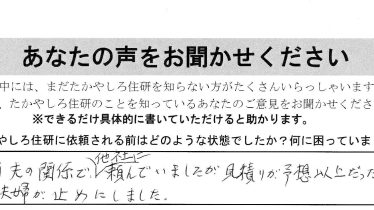 あなたの声をお聞かせください
中には、まだたかやしろ住研を知らない方がたくさんいらっしゃいます
、たかやしろ住研のことを知っているあなたのご意見をお聞かせくださ
※できるだけ具体的に書いていただけると助かります。
やしろ住研に依頼される前はどのような状態でしたか？何に困っていま
他社に
夫の関係で頼んでいましたが見積りが予想以上だった
夫婦が止めにしました。